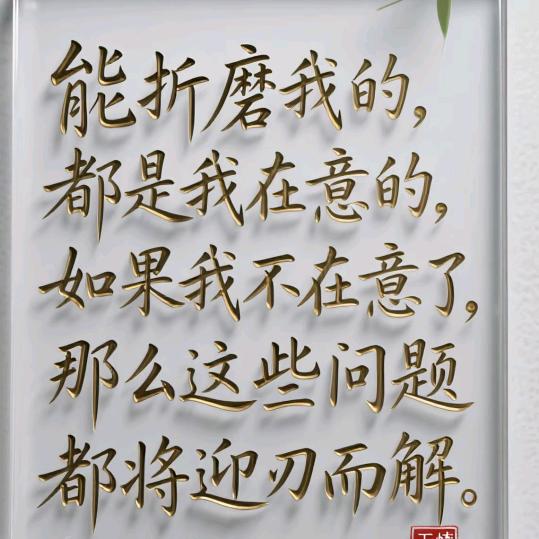 能折磨我的,
都是我在意的,
如果我不在意了,
那么这些问题
都将迎刃而解。